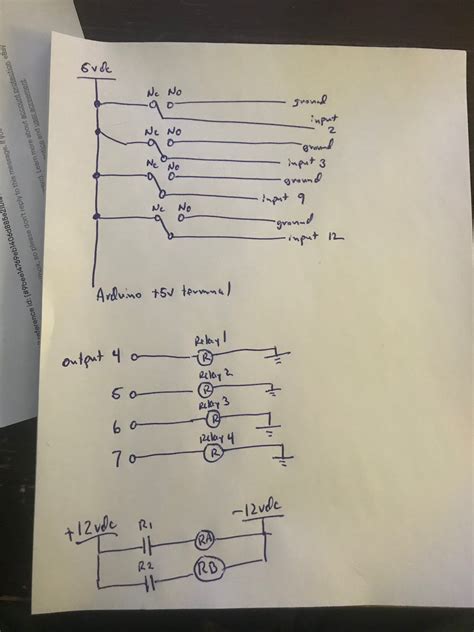 5vdc
NC NO
ground
input 2
NC NO
ground
input 3
NC NO
ground
input 9
NC NO
ground
input 12
Arduino +5v terminal
output 4
Relay 1
R
5
Relay 2
R
6
Relay 3
R
7
Relay 4
R
+12vdc
-12vdc
R1
RA
R2
RB